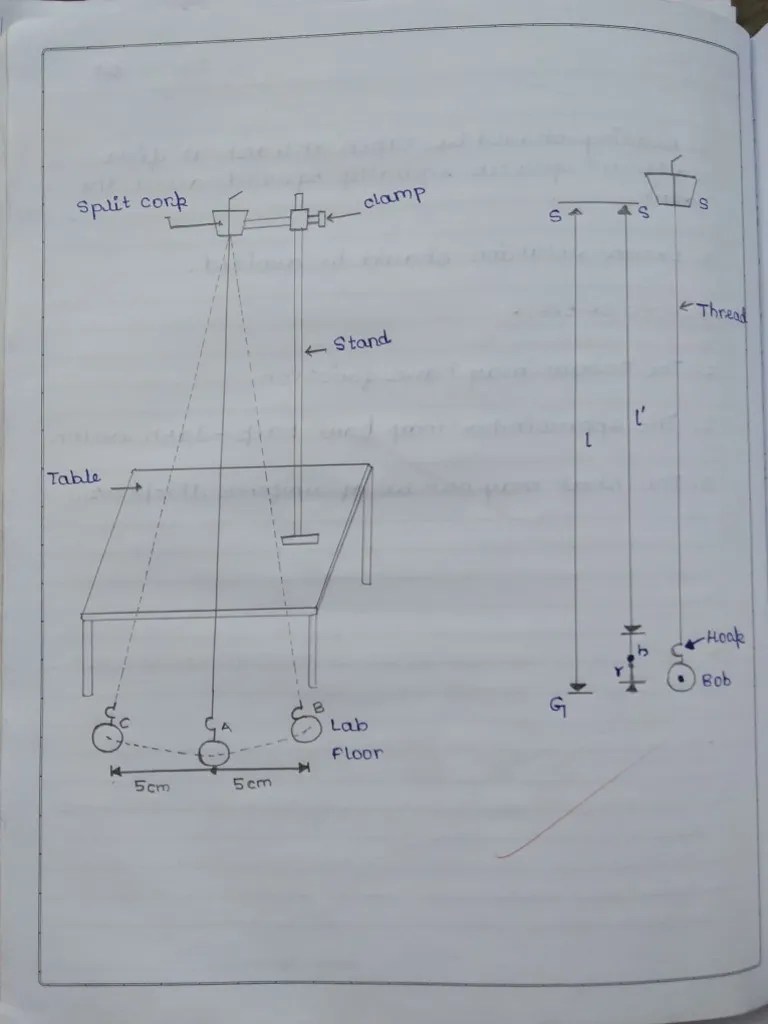 Split cork
clamp
S
S
S
Thread
Stand
l
l'
Table
Hook
h
r
Bob
G
C
A
B
Lab
Floor
5cm
5cm